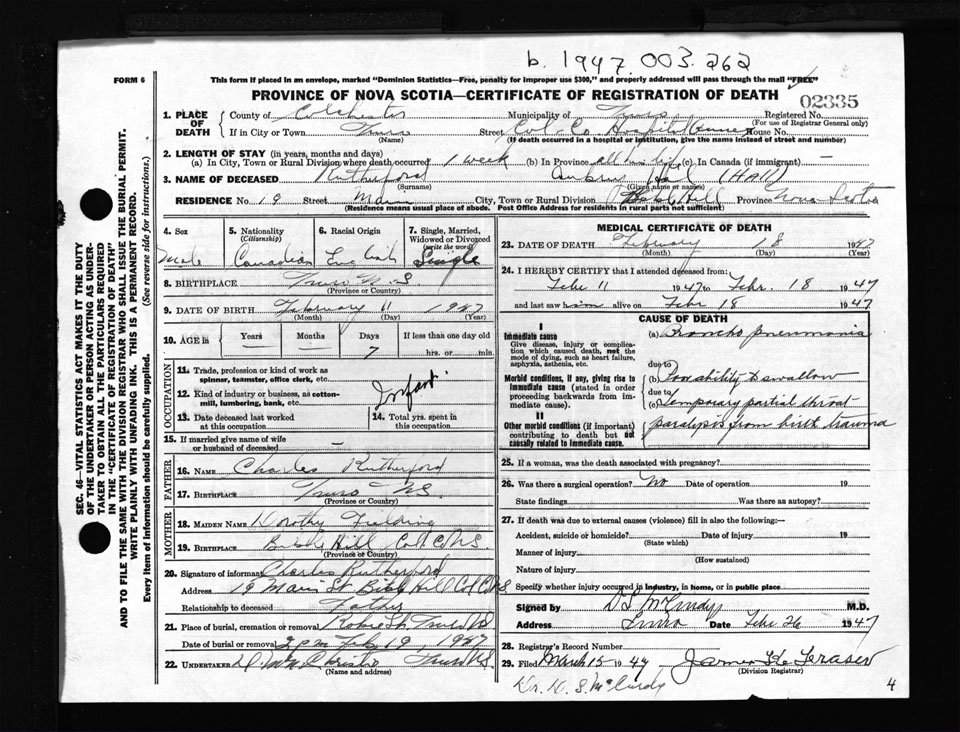 b. 1947. 003. 262
FORM 6
This form if placed in an envelope, marked "Dominion Statistics—Free, penalty for improper use $300," and properly addressed will pass through the mail "FREE"
PROVINCE OF NOVA SCOTIA—CERTIFICATE OF REGISTRATION OF DEATH
02335
1. PLACE OF DEATH
County of Colchester Municipality of Truro Registered No.
(For use of Registrar General only)
If in City or Town Truro Street Col. Co. Hospital House No.
(Name) (If death occurred in a hospital or institution, give the name instead of street and number)
2. LENGTH OF STAY (in years, months and days)
(a) In City, Town or Rural Division where death occurred 1 week (b) In Province all his life (c) In Canada (if immigrant) —
3. NAME OF DECEASED Rutherford (Hall)
(Surname) (Given name or names)
RESIDENCE No. 19 Street Main City, Town or Rural Division Bible Hill Province Nova Scotia
(Residence means usual place of abode. Post Office Address for residents in rural parts not sufficient)
4. Sex 5. Nationality (Citizenship) 6. Racial Origin 7. Single, Married, Widowed or Divorced (write the word)
Male Canadian English Single
8. BIRTHPLACE Truro N. S
(Province or Country)
9. DATE OF BIRTH February 11 1947
(Month) (Day) (Year)
10. AGE in Years Months Days If less than one day old
— — 7 hrs. or min.
OCCUPATION
11. Trade, profession or kind of work as spinner, teamster, office clerk, etc.
12. Kind of industry or business, as cotton-mill, lumbering, bank, etc.
Infant
13. Date deceased last worked at this occupation 14. Total yrs. spent in this occupation
15. If married give name of wife or husband of deceased —
FATHER
16. NAME Charles Rutherford
17. BIRTHPLACE Truro NS
(Province or Country)
MOTHER
18. MAIDEN NAME Dorothy Fielding
19. BIRTHPLACE Bible Hill Col. Co N.S.
(Province or Country)
20. Signature of informant Charles Rutherford
Address 19 Main St Bible Hill Col Co NS
Relationship to deceased Father
21. Place of burial, cremation or removal Robie St. Truro
Date of burial or removal 2 pm Feb 19 1947
22. UNDERTAKER Truro N.S.
(Name and address)
MEDICAL CERTIFICATE OF DEATH
23. DATE OF DEATH February 18 1947
(Month) (Day) (Year)
24. I HEREBY CERTIFY that I attended deceased from:
Febr 11 1947 to Febr. 18 1947
and last saw him alive on Febr 18 1947
CAUSE OF DEATH
I
Immediate cause
Give disease, injury or complication which caused death, not the mode of dying, such as heart failure, asphyxia, asthenia, etc.
(a) Broncho pneumonia
due to
Morbid conditions, if any, giving rise to immediate cause (stated in order proceeding backwards from immediate cause).
(b) Poor ability to swallow
due to
(c) Temporary partial throat
II
Other morbid conditions (if important) contributing to death but not causally related to immediate cause.
paralysis from birth trauma
25. If a woman, was the death associated with pregnancy?
26. Was there a surgical operation? No Date of operation 19
State findings Was there an autopsy?
27. If death was due to external causes (violence) fill in also the following:—
Accident, suicide or homicide? Date of injury 19
(State which)
Manner of injury
(How sustained)
Nature of injury
Specify whether injury occurred in industry, in home, or in public place
Signed by D S McCurdy M.D.
Address Truro Date Febr 26 1947
28. Registrar's Record Number
29. Filed March 15 1947 James
(Division Registrar)
McCurdy
4
SEC. 46—VITAL STATISTICS ACT MAKES IT THE DUTY
OF THE UNDERTAKER OR PERSON ACTING AS UNDER-
TAKER TO OBTAIN ALL THE PARTICULARS REQUIRED
IN THE "CERTIFICATE OF REGISTRATION OF DEATH"
AND TO FILE THE SAME WITH THE DIVISION REGISTRAR WHO SHALL ISSUE THE BURIAL PERMIT.
WRITE PLAINLY WITH UNFADING INK. THIS IS A PERMANENT RECORD.
Every item of information should be carefully supplied. (See reverse side for instructions.)